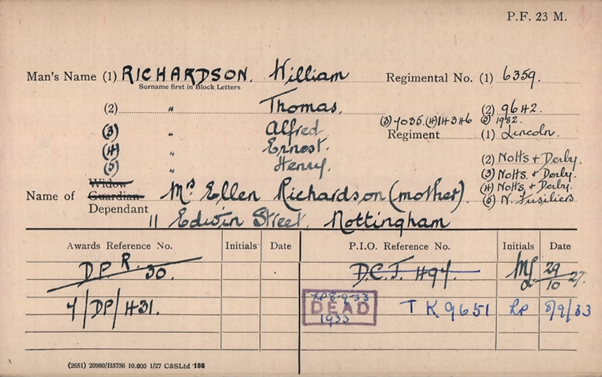 P.F. 23 M.
Man's Name (1) RICHARDSON. William Regimental No. (1) 6359.
Surname first in Block Letters
(2) " Thomas. (2) 96H2.
(3) " Alfred (3) 7035. (4) 14346 (5) 1952.
Regiment (1) Lincoln.
(4) " Ernest. (2) Notts & Derby.
(5) " Henry. (3) Notts. & Derby.
Widow (4) Notts & Derby.
Name of Guardian Mrs Ellen Richardson (mother). (5) N. Fusiliers
Dependant
11 Edwin Street, Nottingham
Awards Reference No. Initials Date P.I.O. Reference No. Initials Date
D.P. R. 30. 29/10 27.
4/DP/431. 8-9-33 DEAD 1933 TK 9651 8/9/33
(2651) 20980/B5736 10,000 1/27 C&SLtd 186